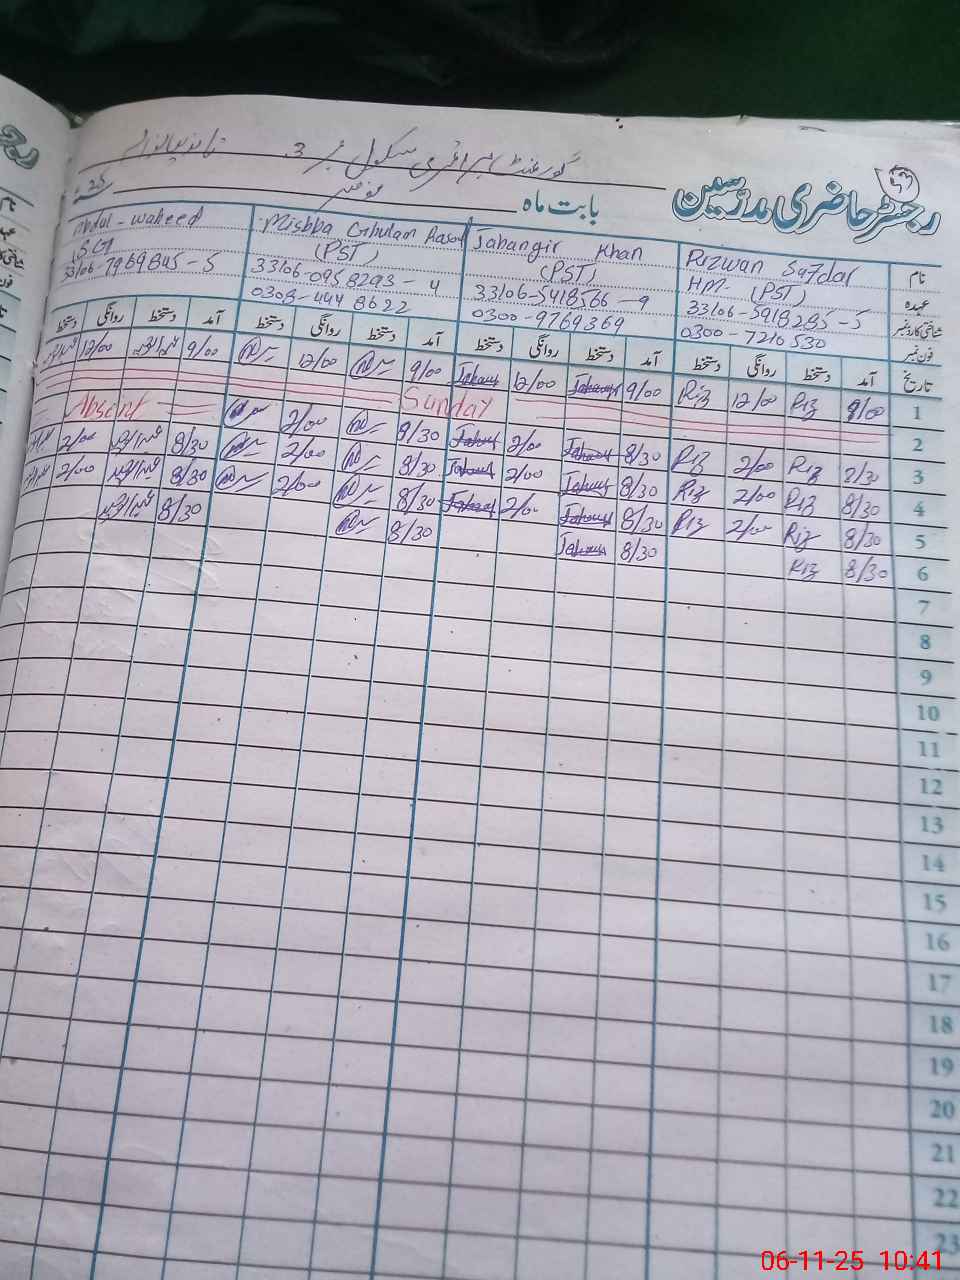 گورنمنٹ پرائمری سکول نمبر 3
رجسٹر حاضری مدرسین
بابت ماہ نومبر 25
نام Rizwan Safdar Jahangir Khan Mishba Ghulam Rasool Abdul-waheed
عہدہ HM- (PST) (PST) (PST)
شناختی کارڈ نمبر 33106-5918285-5 33106-5418566-9 33106-0958293-4 33106-7969845-5
فون نمبر 0300-7210530 0300-9769369 0308-4448622
تاریخ آمد دستخط روانگی دستخط آمد دستخط روانگی دستخط آمد دستخط روانگی دستخط آمد دستخط روانگی دستخط
1 9/00 Riz 12/00 Riz 9/00 Jahang 12/00 Jahang 9/00 12/00 9/00 12/00
2 Sunday
3 8/30 Riz 2/00 Riz 8/30 Jahang 2/00 Jahang 8/30 2/00 Absent
4 8/30 Riz 2/00 Riz 8/30 Jahang 2/00 Jahang 8/30 2/00 8/30 2/00
5 8/30 Riz 2/00 Riz 8/30 Jahang 2/00 Jahang 8/30 2/00 8/30 2/00
6 8/30 Riz 8/30 Jahang 8/30 8/30
7
8
9
10
11
12
13
14
15
16
17
18
19
20
21
22
23
06-11-25 10:41